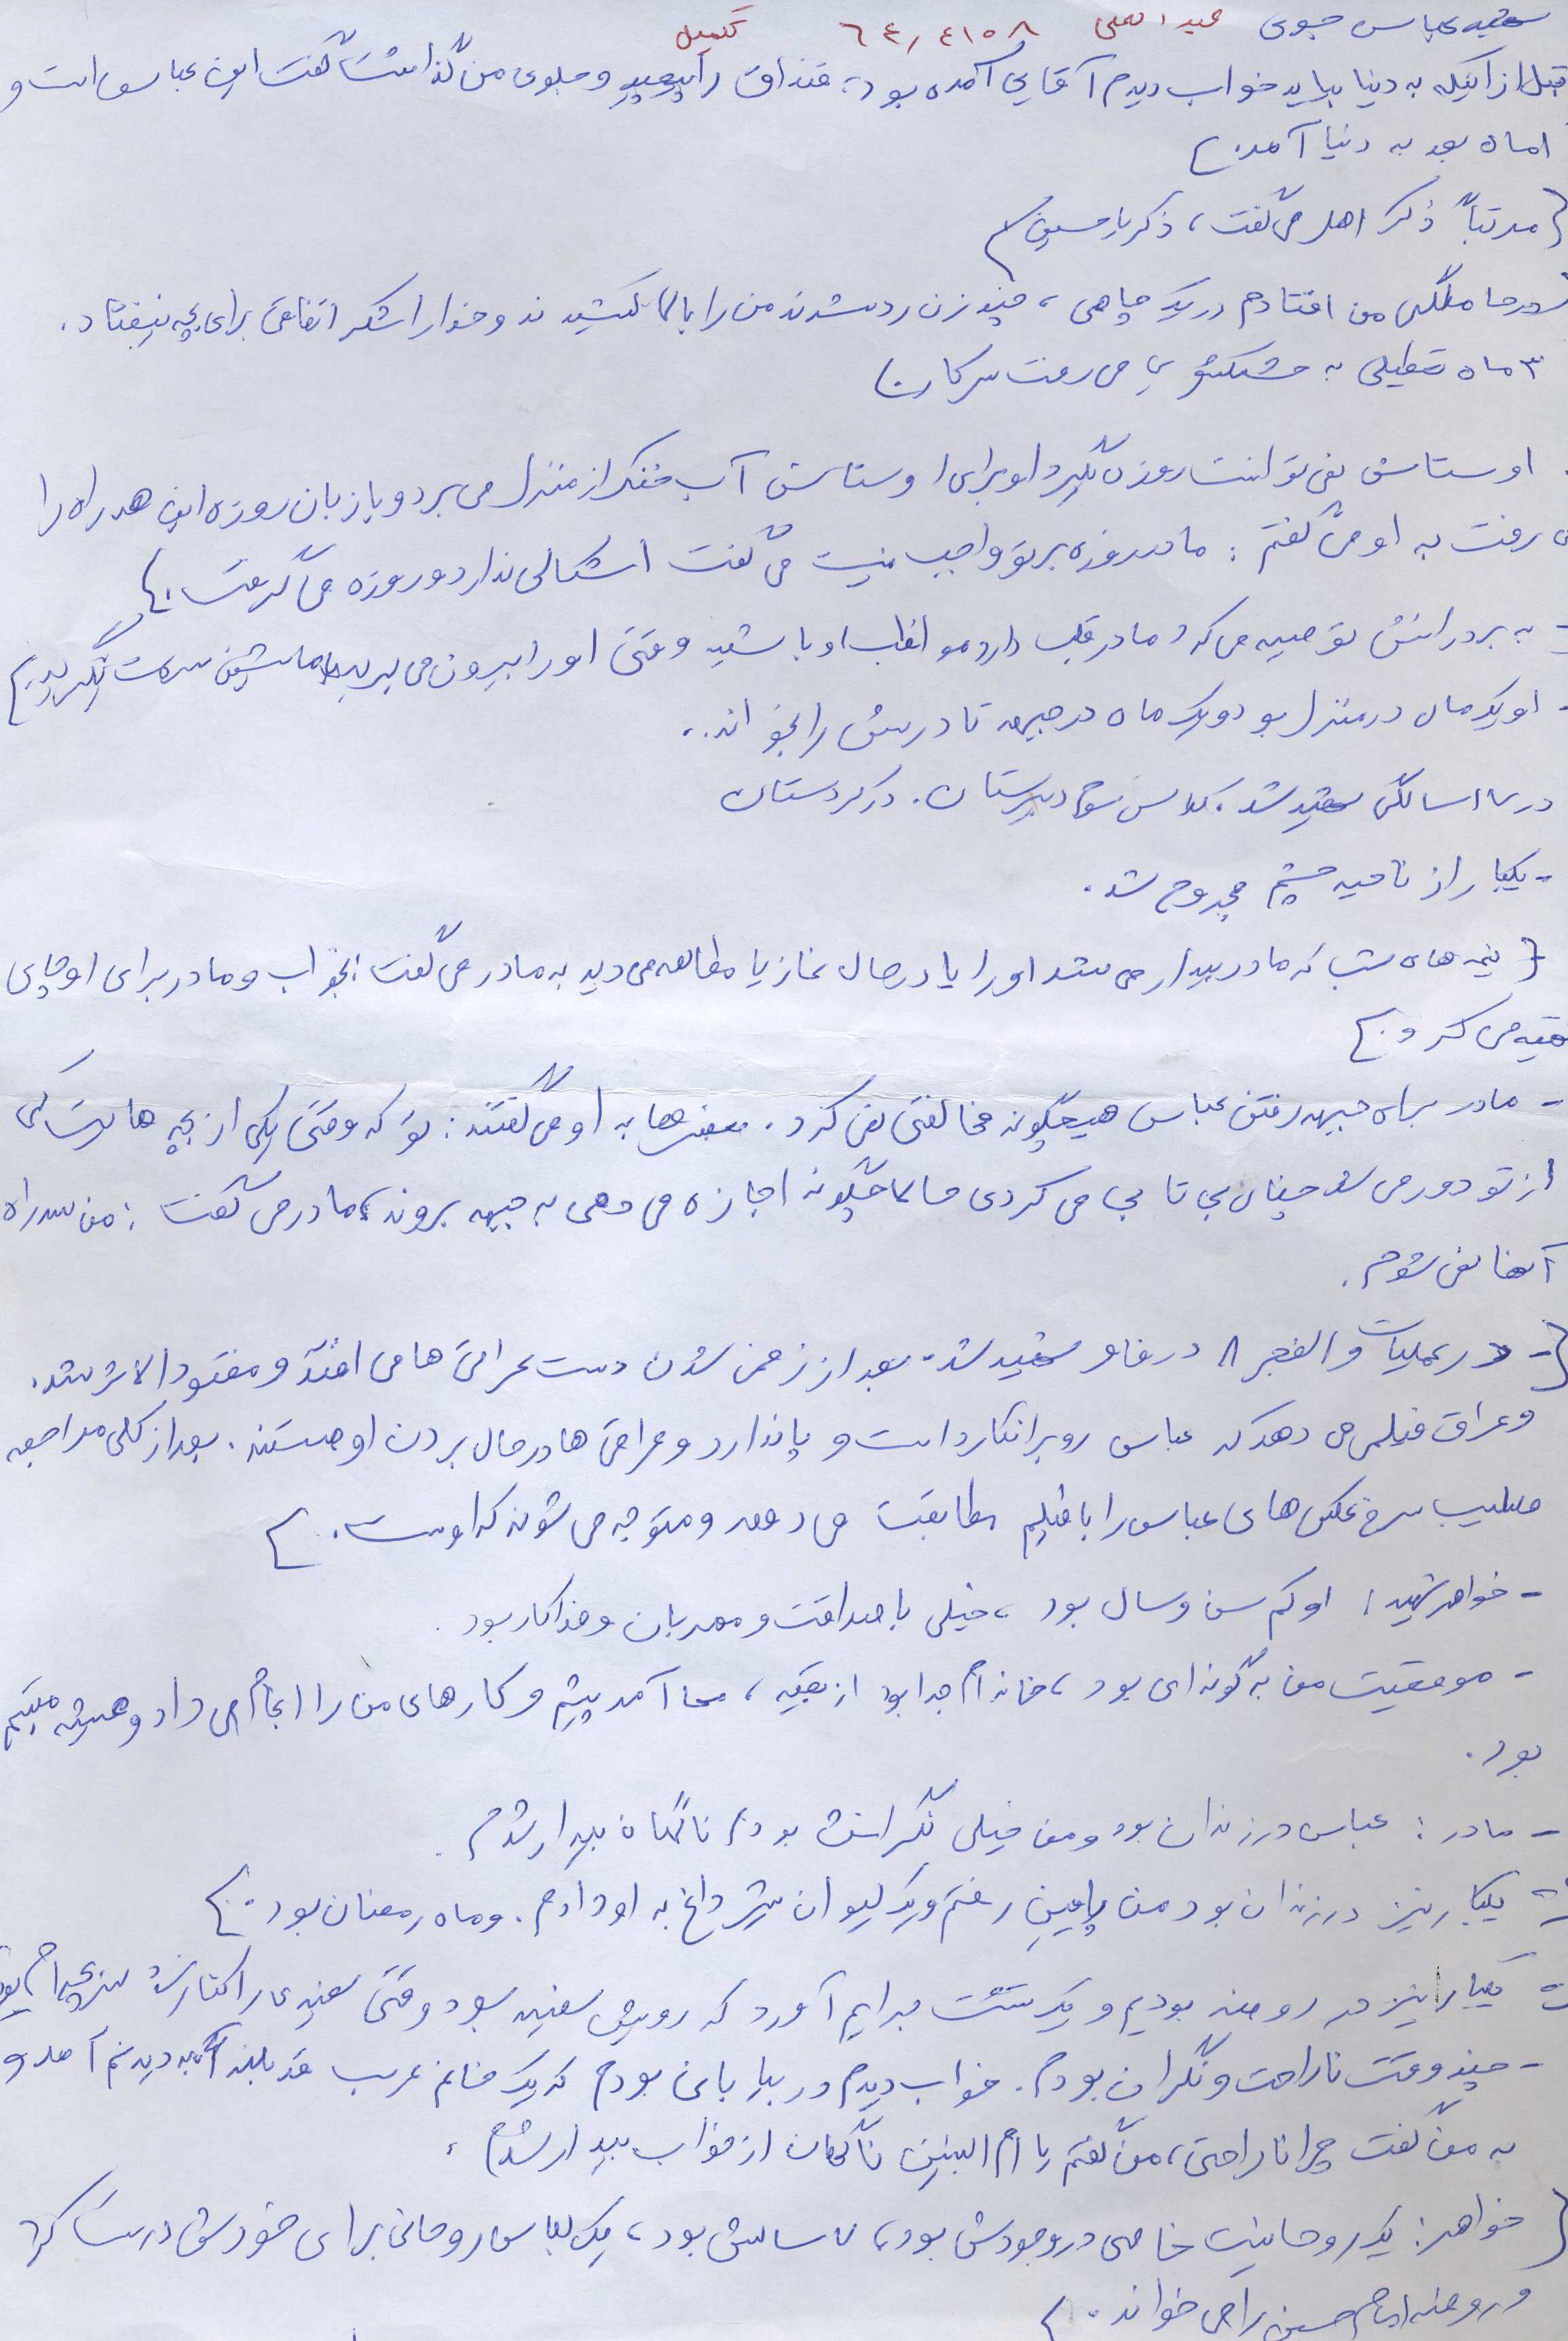 شهید عباس جبوی عبدالعلی ۶۴٫۴۱۵۸ تکمیل
قبل از اینکه به دنیا بیاید خواب دیدم آقایی آمده بود، قنداق را پیچید و جلوی من گذاشت گفت این عباس است و
۱ماه بعد به دنیا آمد.}
{مرتباً ذکر می گفت، ذکر یا حسین}
در حاملگی من افتادم در یک چاهی، چند زن رد شدند من را بالا کشیدند و خدا را شکر اتفاقی برای بچه نیفتاد.
۳ ماه تعطیلی به خشکشویی می رفت سر کار.}
. اوستاش نمی توانست روزه بگیرد او برای اوستاش آب خنک از منزل می برد و با زبان روزه این همه راه را
می رفت به او می گفتم: مادر روزه بر تو واجب نیست می گفت اشکالی ندارد و روزه می گرفت.}
- به برادرانش توصیه می کرد مادر قلب دارد مواظب او باشید وقتی او را بیرون می برید با ماشین سرعت نگیرید.}
- او یک ماه در منزل بود و یک ماه در جبهه تا درسش را بخواند.
در ۱۸ سالگی شهید شد. کلاس سوم دبیرستان. در کردستان
- یکبار از ناحیه چشم مجروح شد.
{- نیمه های شب که مادر بیدار می شد او را یا در حال نماز یا مطالعه می دید به مادر می گفت: بخواب و مادر برای او چای
تهیه می کرد.}
- مادر برای جبهه رفتن عباس هیچگونه مخالفتی نمی کرد. بعضی ها به او می گفتند: تو که وقتی یکی از بچه هایت کمی
از تو دور می شد چنان بی تابی می کردی حالا چگونه اجازه می دهی به جبهه بروند، مادر می گفت: من سد راه
آنها نمی شوم.
{- در عملیات والفجر ۸ در فاو شهید شد. بعد از زخمی شدن دست عراقی ها می افتد و مفقودالاثر شد.
و عراق فیلمی می دهد که عباس رو برانکارد است و پا ندارد و عراقی ها در حال بردن او هستند. بعد از کلی مراجعه
صلیب سرخ عکس های عباس را با فیلم مطابقت می دهد و متوجه می شوند که اوست.}
- خواهر شهید: او کم سن و سال بود، خیلی با صداقت و مهربان و فداکار بود.
- موقعیت من به گونه ای بود، خانه ام جدا بود از بقیه، می آمد پیشم و کارهای من را انجام می داد و همیشه
بود.
- مادر: عباس در زندان بود و من خیلی نگرانش بودم ناگهان بیدار شدم.
- یکبار نیز در زندان بود من پایین رفتم و یک لیوان شیر داغ به او دادم. و ماه رمضان بود.}
- یکبار نیز در روضه بودیم و یک تشت برایم آورد که رویش سفید بود وقتی سفیدی را کنار زد بود
- چند وقت ناراحت و نگران بودم. خواب دیدم در بیابانی بودم که یک خانم عرب قد بلند به دیدنم آمد و
به من گفت چرا ناراحتی، من گفتم یا ام البنین ناگهان از خواب بیدار شدم.
{خواهر: یک روحانیت خاصی در وجودش بود، ۷ سالش بود، یک لباس روحانی برای خودش درست کرد
و روضه امام حسین را می خواند.}